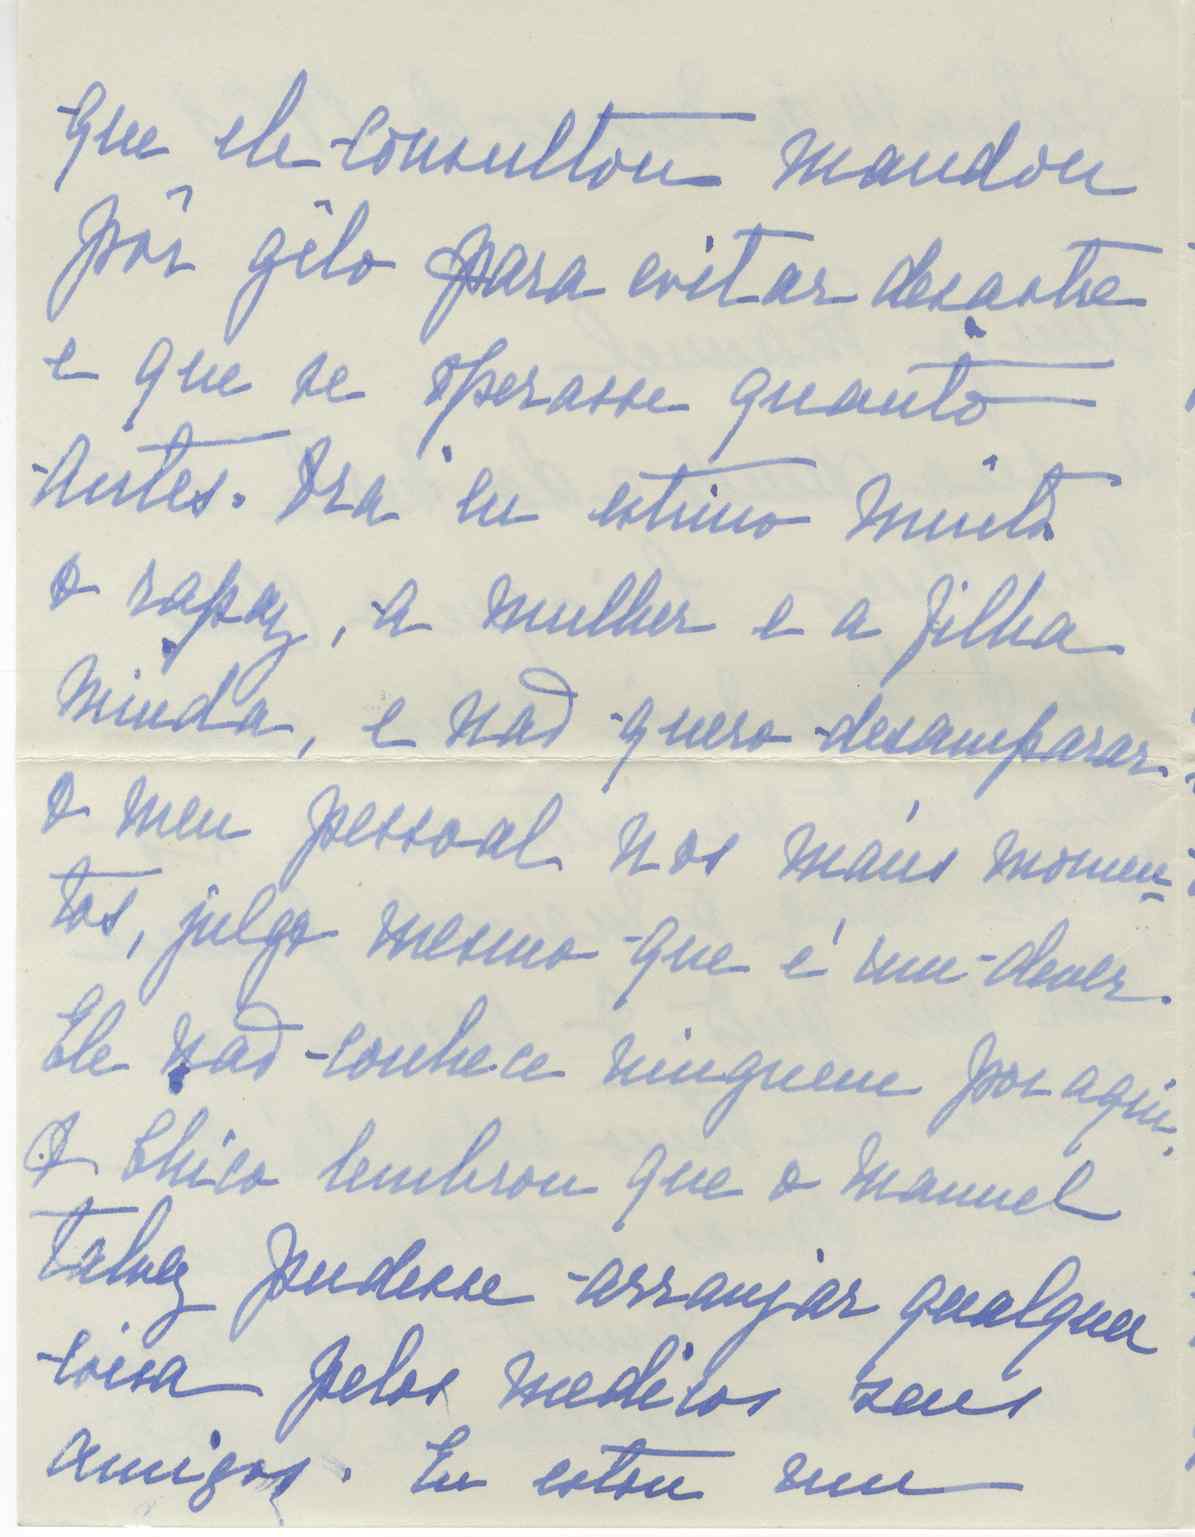 que ele consultou mandou
pôr gêlo para evitar desastre
e que se operasse quanto
antes. Ora eu estimo muito
o rapaz, a mulher e a filha
miuda, e não quero desamparar
o meu pessoal nos máus momen=
tos, julgo mesmo que é um dever.
Ele não conhece ninguem por aqui.
O Chico lembrou que o Manuel
talvez pudesse arranjar qualquer
coisa pelos medicos seus
amigos. Eu estou um